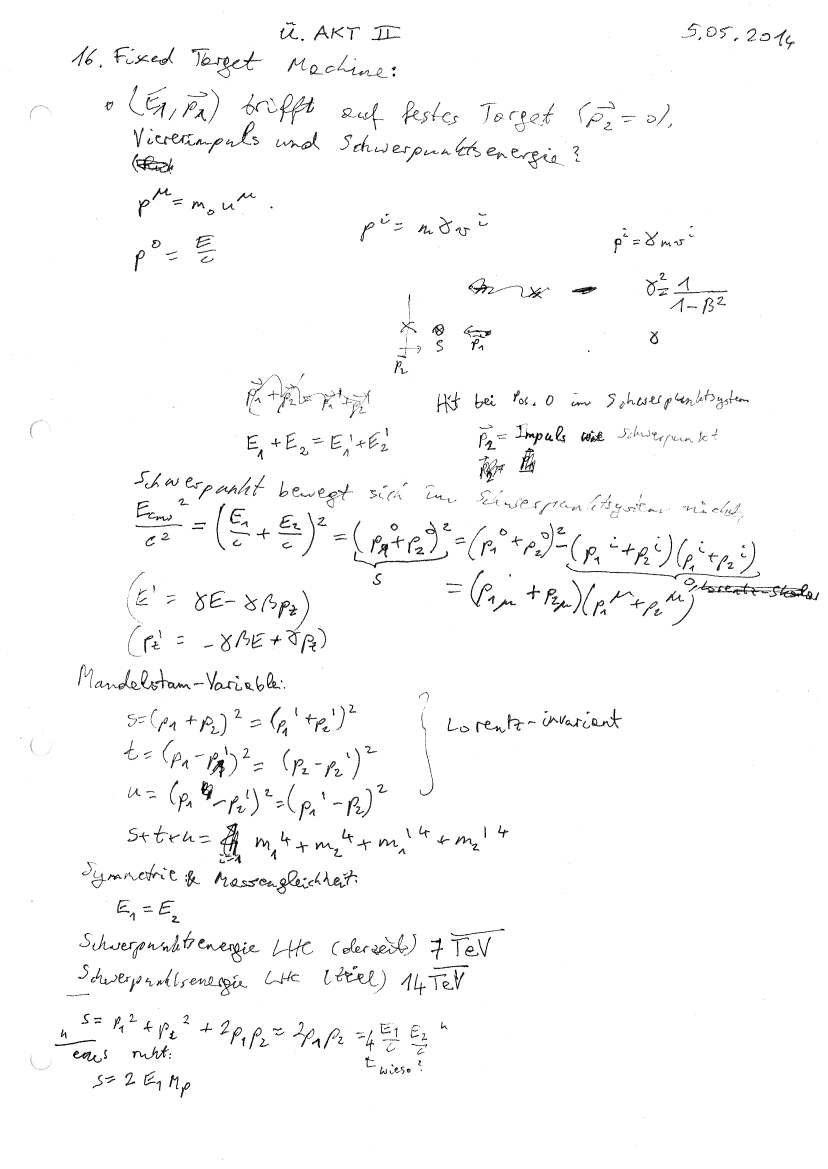 Ü. AKT II 5.05.2014
16. Fixed Target Machine:
(E₁, p⃗₁) trifft auf festes Target (p⃗₂ = 0),
Viererimpuls und Schwerpunktsenergie?
p^μ = m₀ u^μ .
pⁱ = m γ vⁱ
pⁱ = γ m vⁱ
p⁰ = E/c
γ² = 1/(1-β²)
γ
S p⃗₁
p⃗₂
Hit bei Pos. 0 im Schwerpunktsystem
E₁ + E₂ = E₁' + E₂'
p⃗₂ = Impuls Schwerpunkt
Schwerpunkt bewegt sich im Schwerpunktsystem nicht,
E_cms²/c² = (E₁/c + E₂/c)² = (p₁⁰ + p₂⁰)² = (p₁⁰ + p₂⁰)² - (p₁ⁱ + p₂ⁱ)(p₁ⁱ + p₂ⁱ)
s 0, Lorentz-Skalar
= (p₁μ + p₂μ)(p₁^μ + p₂^μ)
(E' = γE - γβp_z)
(p_z' = -γβE + γp_z)
Mandelstam-Variable:
s = (p₁ + p₂)² = (p₁' + p₂')²
t = (p₁ - p₁')² = (p₂ - p₂')²
Lorentz-invariant
u = (p₁ - p₂')² = (p₁' - p₂)²
s+t+u = m₁⁴ + m₂⁴ + m₁'⁴ + m₂'⁴
Symmetrie & Massengleichheit:
E₁ = E₂
Schwerpunktsenergie LHC (derzeit) 7 TeV
Schwerpunktsenergie LHC (Ziel) 14 TeV
" s = p₁² + p₂² + 2p₁p₂ ≈ 2p₁p₂ = 4 E₁/c E₂/c "
wieso?
eines ruht:
s = 2 E₁ M_p